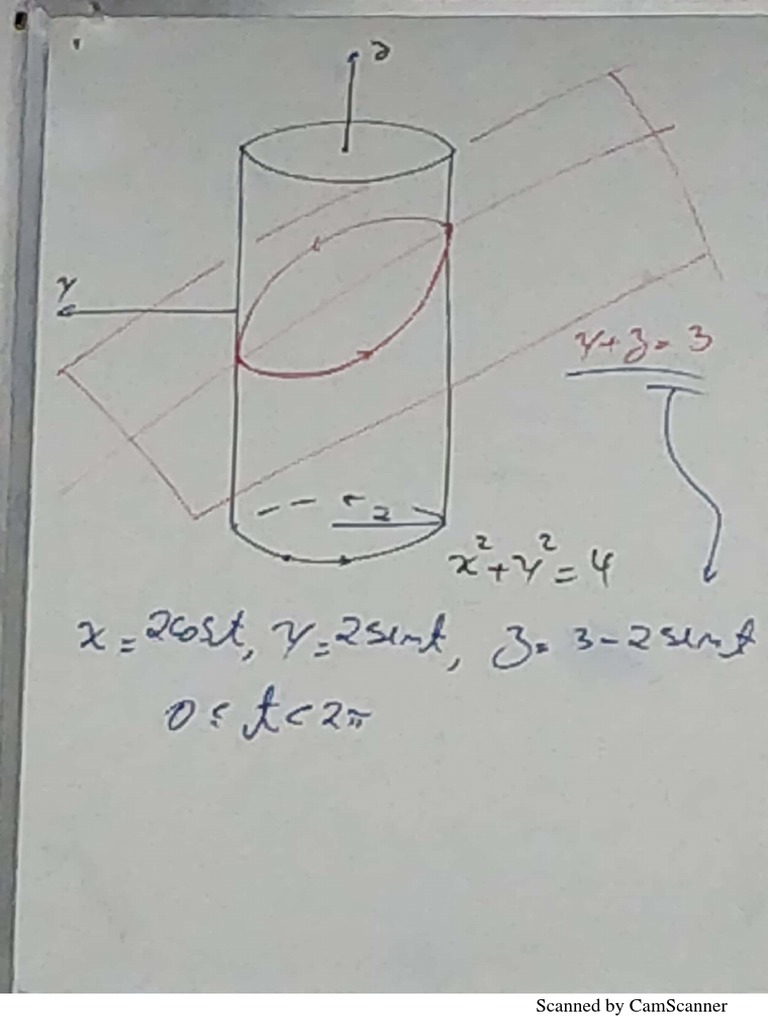 z
y
y+z=3
2
x²+y²=4
x=2cost, y=2sint, z=3-2sint
0≤t<2π
Scanned by CamScanner